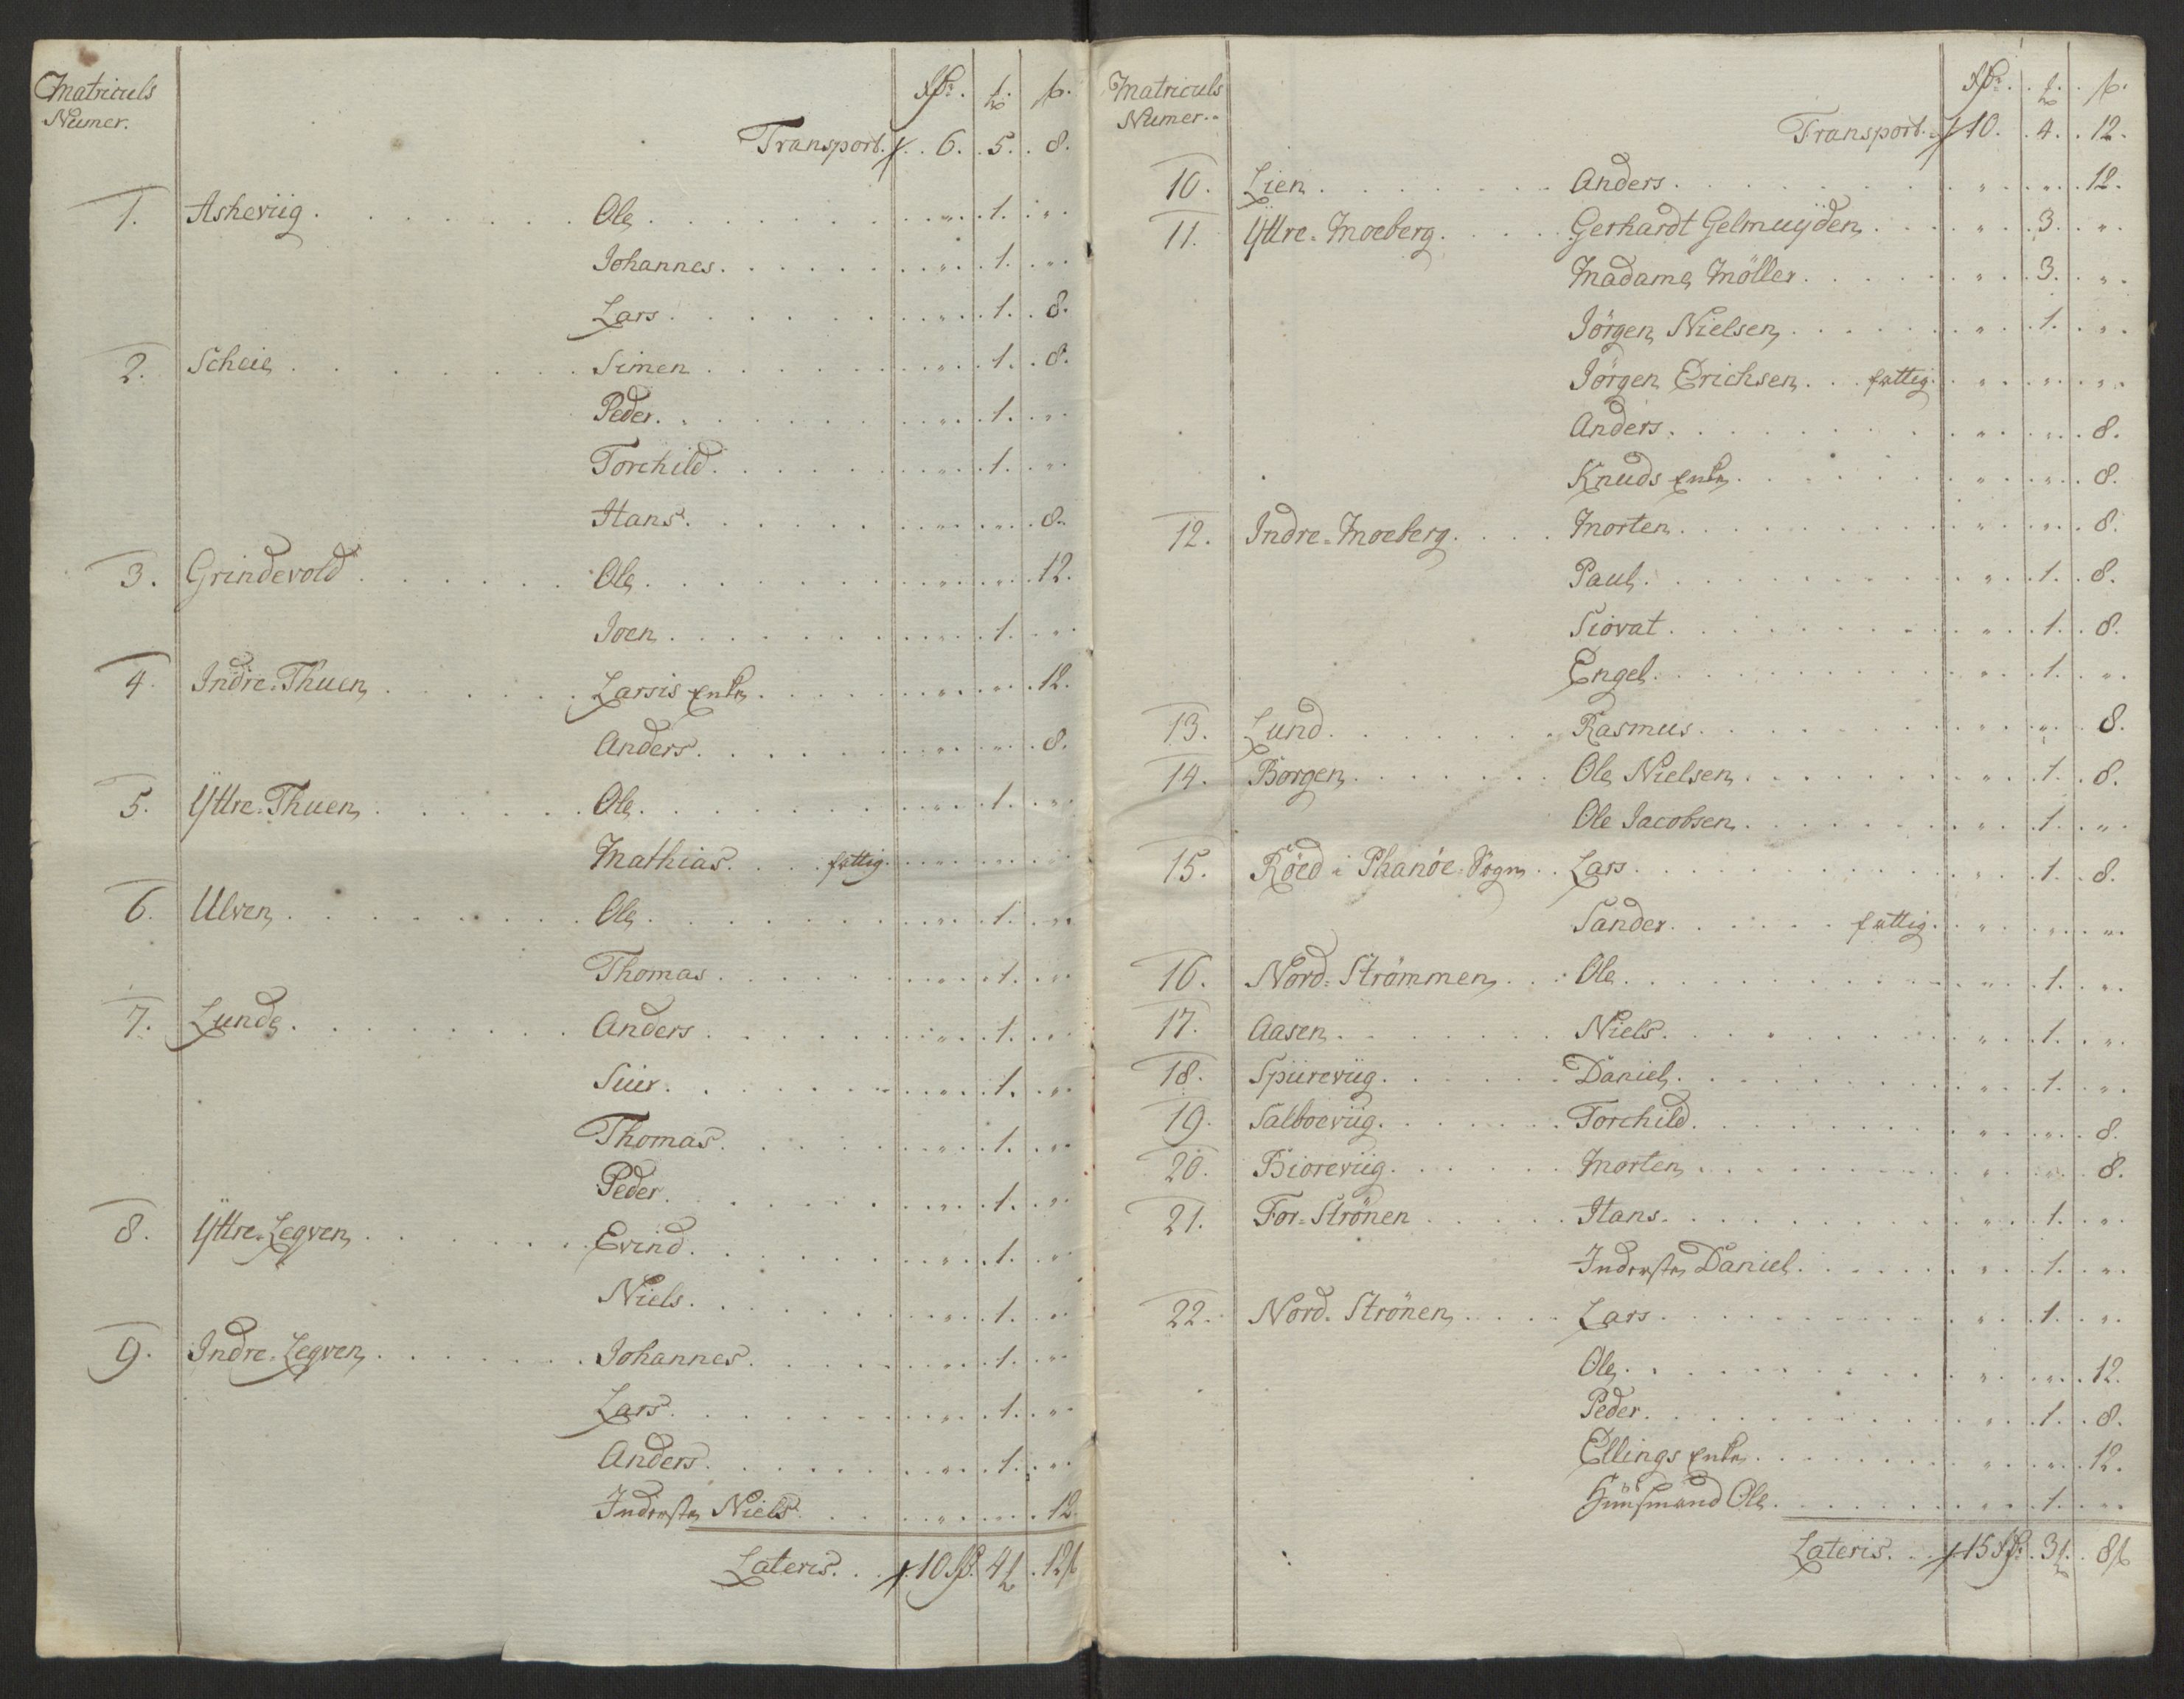 Matriculs
Numer.
Rdr. ₰. ß.
Transport. 6. 5. 8.
1. Askeviig. Ole. " 1. "
Johannes. " 1. "
Lars. " 1. 8.
2. Scheie. Simen. " 1. 8.
Peder. " 1. "
Torchild. " 1. "
Hans. " " 8.
3. Grindevold. Ole. " " 12.
Joen. " 1. "
4. Indre=Thuen. Larsis Enke. " " 12.
Anders. " " 8.
5. Yttre=Thuen. Ole. " 1. "
Mathias. fattig. " " "
6. Ulven. Ole. " 1. "
Thomas. " 1. "
7. Lunde. Anders. " 1. "
Siur. " 1. "
Thomas. " 1. "
Peder. " 1. "
8. Yttre=Legven. Evind. " 1. "
Niels. " 1. "
9. Indre=Legven. Johannes. " 1. "
Lars. " 1. "
Anders. " 1. "
Inderste Niels. " " 12.
Lateris. 10 4 12ß
Matriculs
Numer.
Rdr. ₰. ß.
Transport. 10. 4. 12.
10. Lien. Anders. " " 12.
11. Yttre=Moeberg. Gerhardt Gelmuÿden. " 3. "
Madame Möller. " 3. "
Jörgen Nielsen. " 1. "
Jörgen Erichsen. fattig. " " "
Anders. " " 8.
Knuds Enke. " " 8.
12. Indre=Moeberg. Morten. " " 8.
Paul. " 1. 8.
Siovat. " 1. 8.
Engel. " 1. "
13. Lund. Rasmus. " " 8.
14. Borgen. Ole Nielsen. " 1. 8.
Ole Jacobsen. " 1. "
15. Röed i Phanöe=Sogn. Lars. " 1. 8.
Sander. fattig. " " "
16. Nord=Strömmen. Ole. " 1. "
17. Aasen. Niels. " 1. "
18. Spüreviig. Daniel. " 1. "
19. Salboeviig. Torchild. " " 8.
20. Bioreviig. Morten. " " 8.
21. For=Strönen. Hans. " 1. "
Inderste Daniel. " 1. "
22. Nord=Strönen. Lars. " 1. "
Ole. " " 12.
Peder. " 1. 8.
Ellings Enke. " " 12.
Huusmand Ole. " 1. "
Lateris. 15 3 8ß